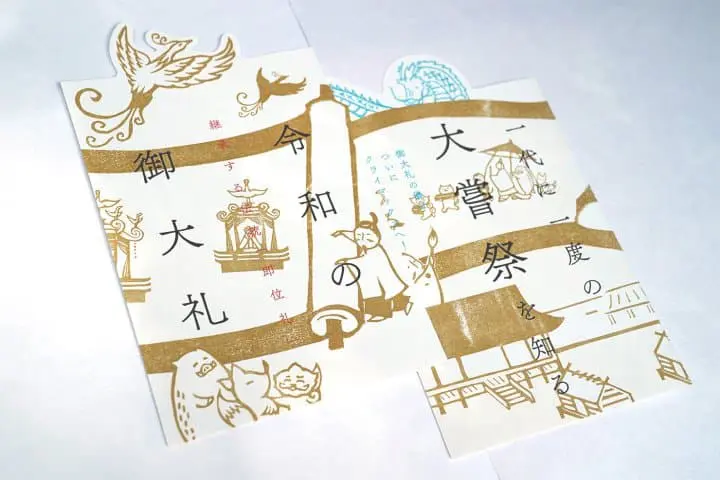 一代に一度の
大嘗祭を知る
御大礼の
ついに
クライマックスへ!
令和の
御大礼
継承する
即位礼